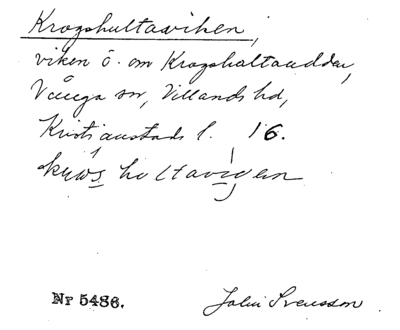 Krogshultaviken,
viken ö. om Krogshultaudden,
Vånga sn, Villands hd,
Kristianstads l. 16.
hultavigen
Nr 5486.
John Svensson